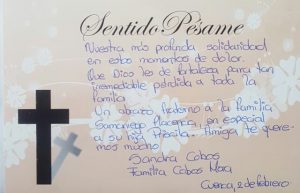 Sentido Pésame
Nuestra más profunda solidaridad
en estos momentos de dolor.
Que Dios les de fortaleza para tan
irremediable pérdida a toda la
familia
Un abrazo fraterno a la familia
Samaniego Placencia, en especial
a su hija Priscila. Amiga te quere-
mos mucho
Sandra Cobos
Familia Cobos Mora
Cuenca, 2 de febrero